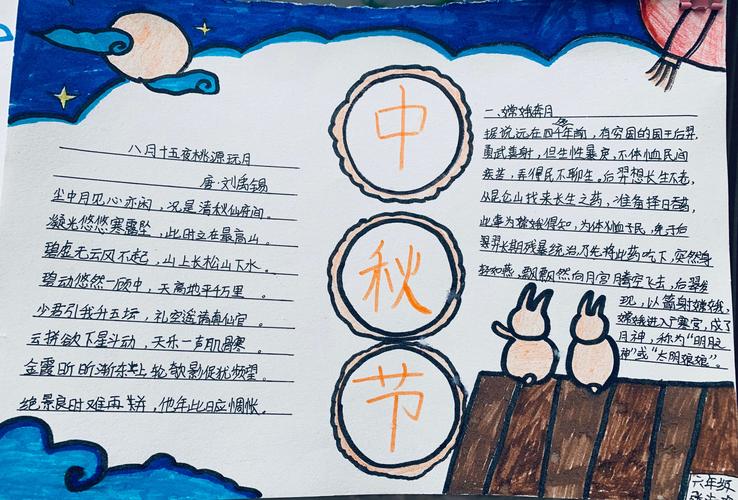 八月十五夜桃源玩月
唐·刘禹锡
尘中见月心亦闲，况是清秋仙府间。
凝光悠悠寒露坠，此时立在最高山。
碧虚无云风不起，山上长松山下水。
群动悠然一顾中，天高地平千万里。
少君引我升玉坛，礼空遥请真仙官。
云拼欲下星斗动，天乐一声肌骨寒。
金霞昕昕渐东上，轮欹影促犹频望。
绝景良时难再并，他年此日应惆怅。
中
秋
节
一、嫦娥奔月
据说远在四千年前，有穷国的国王后羿，
勇武善射，但生性暴戾，不体恤民间
疾苦，弄得民不聊生。后羿想长生不老，
从昆仑山找来长生之药，准备择日吞药，
此事为嫦娥得知，为体恤于民，免于后
羿长期残暴统治乃先将此药吃下，突然身
轻如燕，飘飘然向月宫腾空飞去，后羿发
现，以箭射嫦娥，
嫦娥进入广寒宫，成了
月神，称为“明月之
神”或“太阴娘娘”。
六年级